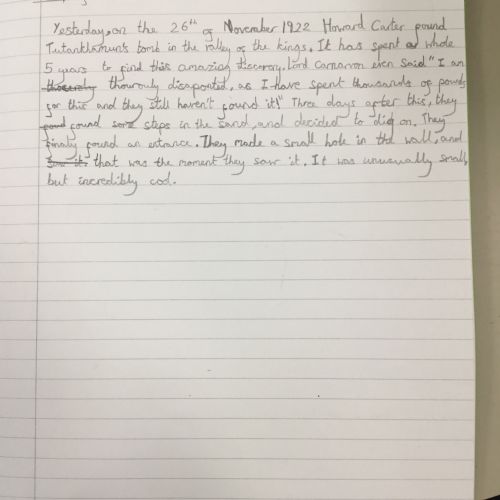 Yesterday, on the 26th of November 1922 Howard Carter found
Tutankhamun's tomb in the valley of the kings. It has spent a whole
5 years to find this amazing discorery. Lord Carnarvon even said "I am
thourouly disaponted, as I have spent thousands of pounds
for this and they still haven't found it!" Three days after this, they
found some steps in the sand, and decided to dig on. They
finally found an entance. They made a small hole in the wall, and
that was the moment they saw it. It was unusually small,
but incredibly cool.